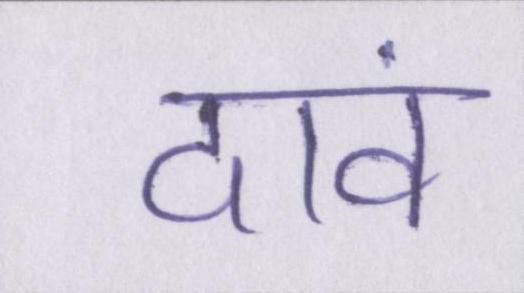 दावं